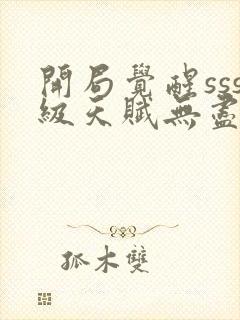 開局覺醒sss
級天賦無盡
孤木雙